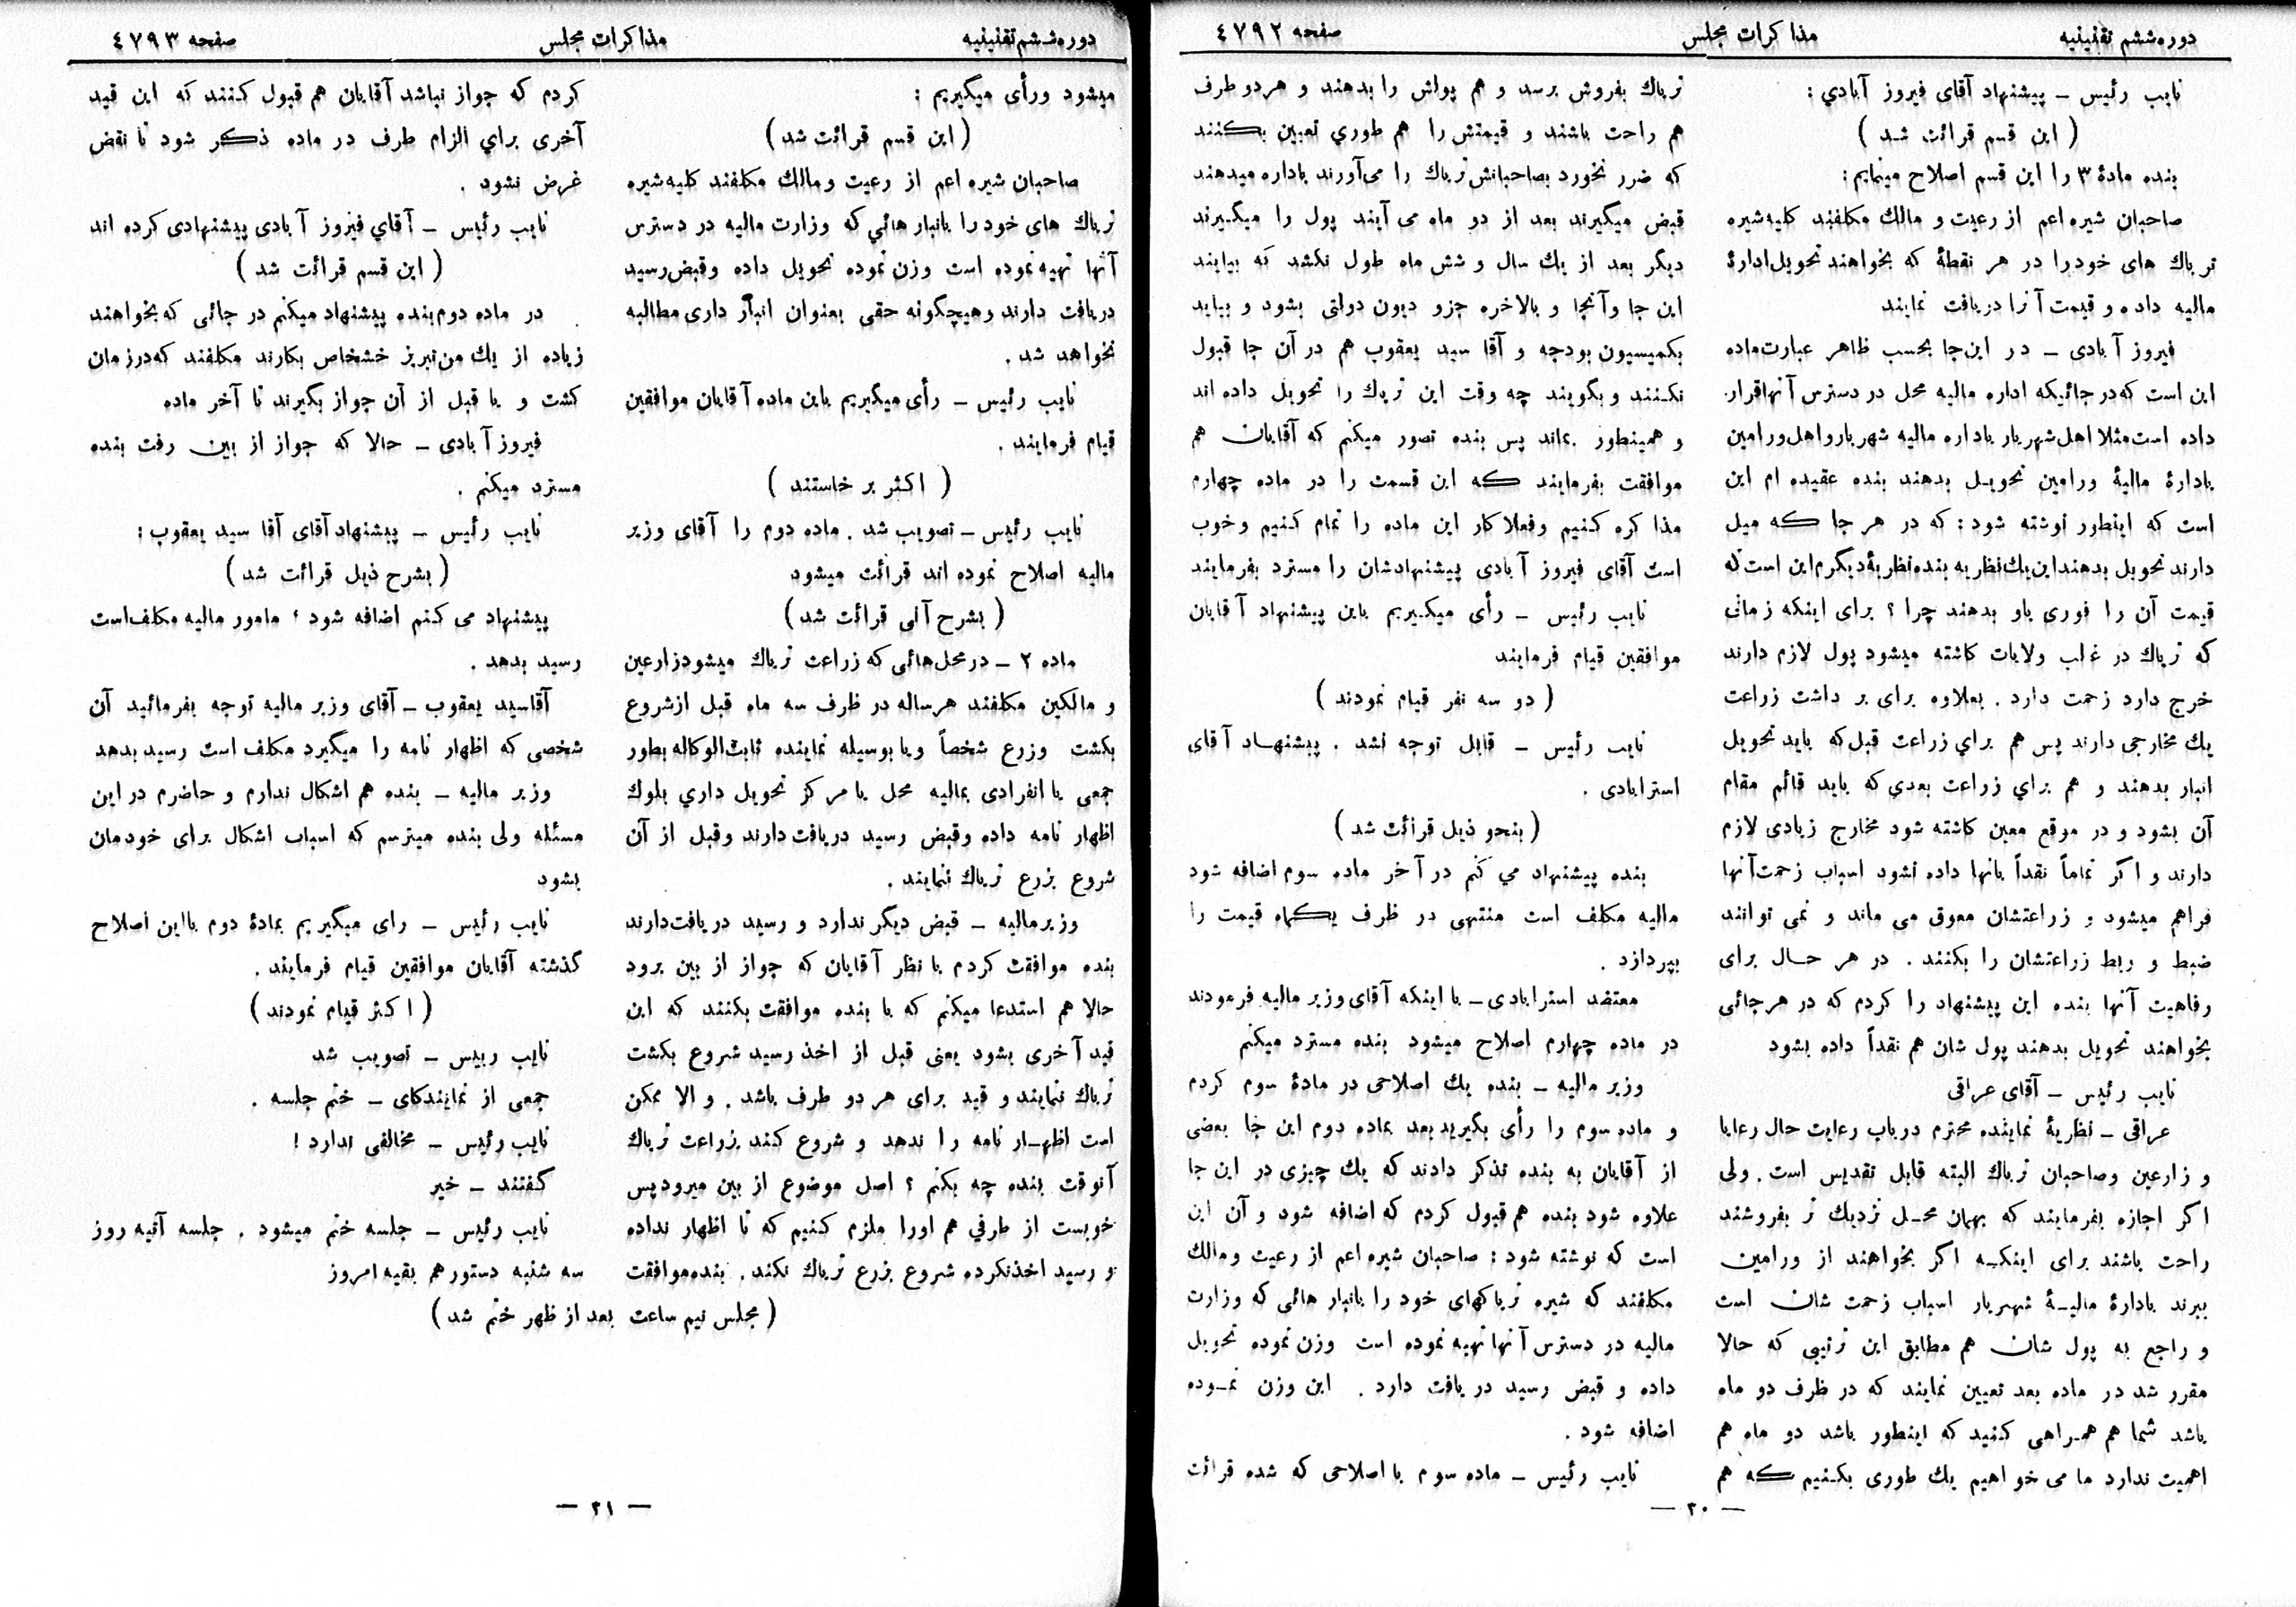 دوره ششم تقنینیه مذاکرات مجلس صفحه ٤٧٩٢
نایب رئیس ــ پیشنهاد آقای فیروز آبادي :
( این قسم قرائت شد )
بنده مادهٔ ۳ را این قسم اصلاح مینمایم :
صاحبان شیره اعم از رعیت و مالك مکلفند کلیه شیره
تریاك های خود را در هر نقطهٔ که بخواهند تحویل ادارهٔ
مالیه داده و قیمت آنرا دریافت نمایند
فیروز آبادی ــ در این جا بحسب ظاهر عبارت ماده
این است که در جائیکه اداره مالیه محل در دسترس آنها قرار
داده است مثلا اهل شهریار باداره مالیه شهریار و اهل ورامین
بادارهٔ مالیهٔ ورامین تحویل بدهند بنده عقیده ام این
است که اینطور نوشته شود : که در هر جا که میل
دارند تحویل بدهند این یك نظریه بنده نظریهٔ دیگرم این است که
قیمت آن را فوری باو بدهند چرا ؟ برای اینکه زمانی
که تریاك در غلب ولایات کاشته میشود پول لازم دارند
خرج دارد زحمت دارد . بعلاوه برای بر داشت زراعت
یك مخارجی دارند پس هم براي زراعت قبل که باید تحویل
انبار بدهند و هم براي زراعت بعدي که باید قائم مقام
آن بشود و در موقع معین کاشته شود مخارج زیادی لازم
دارند و اگر تماماً نقداً بانها داده نشود اسباب زحمت آنها
فراهم میشود و زراعتشان معوق می ماند و نمی توانند
ضبط و ربط زراعتشان را بکنند . در هر حال برای
رفاهیت آنها بنده این پیشنهاد را کردم که در هر جائی
بخواهند تحویل بدهند پول شان هم نقداً داده بشود
نایب رئیس ــ آقای عراقی
عراقی ــ نظریهٔ نماینده محترم در باب رعایت حال رعایا
و زارعین و صاحبان تریاك البته قابل تقدیس است . ولی
اگر اجازه بفرمایند که بهمان محل نزدیك تر بفروشند
راحت باشند برای اینکه اگر بخواهند از ورامین
ببرند بادارهٔ مالیهٔ شهریار اسباب زحمت شان است
و راجع به پول شان هم مطابق این ترتیبی که حالا
مقرر شد در ماده بعد تعیین نمایند که در ظرف دو ماه
باشد شما هم همراهی کنید که اینطور باشد دو ماه هم
اهمیت ندارد ما می خواهیم یك طوری بکنیم که هم
تریاك بفروش برسد و هم پولش را بدهند و هر دو طرف
هم راحت باشند و قیمتش را هم طوري تعیین بکنند
که ضرر نخورد بصاحبانش تریاك را می‌آورند باداره میدهند
قبض میگیرند بعد از دو ماه می آیند پول را میگیرند
دیگر بعد از یك سال و شش ماه طول نکشد که بیایند
این جا و آنجا و بالاخره جزو دیون دولتی بشود و بیاید
بکمیسیون بودجه و آقا سید یعقوب هم در آن جا قبول
نکنند و بگویند چه وقت این تریاك را تحویل داده اند
و همینطور بماند پس بنده تصور میکنم که آقایان هم
موافقت بفرمایند که این قسمت را در ماده چهارم
مذاکره کنیم و فعلا کار این ماده را تمام کنیم و خوب
است آقای فیروز آبادی پیشنهادشان را مسترد بفرمایند
نایب رئیس ــ رأی میگیریم باین پیشنهاد آقایان
موافقین قیام فرمایند
( دو سه نفر قیام نمودند )
نایب رئیس ــ قابل توجه نشد . پیشنهاد آقای
استرابادی .
( بنحو ذیل قرائت شد )
بنده پیشنهاد می کنم در آخر ماده سوم اضافه شود
مالیه مکلف است منتهی در ظرف یکماه قیمت را
بپردازد .
معتضد استرابادی ــ با اینکه آقای وزیر مالیه فرمودند
در ماده چهارم اصلاح میشود بنده مسترد میکنم
وزیر مالیه ــ بنده یك اصلاحی در مادهٔ سوم کردم
و ماده سوم را رأی بگیرید بعد بماده دوم این جا بعضی
از آقایان به بنده تذکر دادند که یك چیزی در این جا
علاوه شود بنده هم قبول کردم که اضافه شود و آن این
است که نوشته شود : صاحبان شیره اعم از رعیت و مالك
مکلفند که شیره تریاکهای خود را بانبار هائی که وزارت
مالیه در دسترس آنها تهیه نموده است وزن نموده تحویل
داده و قبض رسید دریافت دارد . این وزن نموده
اضافه شود .
نایب رئیس ــ ماده سوم با اصلاحی که شده قرائت
ــ ۲۰ ــ
دوره ششم تقنینیه مذاکرات مجلس صفحه ٤٧٩٣
میشود و رأی میگیریم :
( این قسم قرائت شد )
صاحبان شیره اعم از رعیت و مالك مکلفند کلیه شیره
تریاك های خود را بانبار هائي که وزارت مالیه در دسترس
آنها تهیه نموده است وزن نموده تحویل داده و قبض رسید
دریافت دارند و هیچگونه حقی بعنوان انبار داری مطالبه
نخواهد شد .
نایب رئیس ــ رأی میگیریم باین ماده آقایان موافقین
قیام فرمایند .
( اکثر بر خاستند )
نایب رئیس ــ تصویب شد . ماده دوم را آقای وزیر
مالیه اصلاح نموده اند قرائت میشود
( بشرح آتی قرائت شد )
ماده ۲ ــ در محل هائی که زراعت تریاك میشود زارعین
و مالکین مکلفند هر ساله در ظرف سه ماه قبل از شروع
بکشت و زرع شخصاً و یا بوسیله نماینده ثابت الوکاله بطور
جمعی یا انفرادی بمالیه محل یا مرکز تحویل داري بلوك
اظهار نامه داده و قبض رسید دریافت دارند و قبل از آن
شروع بزرع تریاك ننمایند .
وزیر مالیه ــ قبض دیگر ندارد و رسید دریافت دارند
بنده موافقت کردم با نظر آقایان که جواز از بین برود
حالا هم استدعا میکنم که با بنده موافقت بکنند که این
قید آخری بشود یعنی قبل از اخذ رسید شروع بکشت
تریاك ننمایند و قید برای هر دو طرف باشد . و الا ممکن
است اظهار نامه را ندهد و شروع کند بزراعت تریاك
آنوقت بنده چه بکنم ؟ اصل موضوع از بین میرود پس
خوبست از طرفي هم اورا ملزم کنیم که تا اظهار نداده
و رسید اخذ نکرده شروع بزرع تریاك نکند . بنده موافقت
کردم که جواز نباشد آقایان هم قبول کنند که این قید
آخری براي الزام طرف در ماده ذکر شود تا نقض
غرض نشود .
نایب رئیس ــ آقاي فیروز آبادی پیشنهادی کرده اند
( این قسم قرائت شد )
در ماده دوم بنده پیشنهاد میکنم در جائی که بخواهند
زیاده از یك من تبریز خشخاص بکارند مکلفند که در زمان
کشت و یا قبل از آن جواز بگیرند تا آخر ماده
فیروز آبادی ــ حالا که جواز از بین رفت بنده
مسترد میکنم .
نایب رئیس ــ پیشنهاد آقای آقا سید یعقوب :
( بشرح ذیل قرائت شد )
پیشنهاد می کنم اضافه شود ؛ مامور مالیه مکلف است
رسید بدهد .
آقاسید یعقوب ــ آقای وزیر مالیه توجه بفرمائید آن
شخصی که اظهار نامه را میگیرد مکلف است رسید بدهد
وزیر مالیه ــ بنده هم اشکال ندارم و حاضرم در این
مسئله ولی بنده میترسم که اسباب اشکال برای خودمان
بشود
نایب رئیس ــ رای میگیریم بمادهٔ دوم بااین اصلاح
گذشته آقایان موافقین قیام فرمایند .
( اکثر قیام نمودند )
نایب رییس ــ تصویب شد
جمعی از نمایندکای ــ ختم جلسه .
نایب رئیس ــ مخالفی ندارد !
گفتند ــ خیر
نایب رئیس ــ جلسه ختم میشود . جلسه آتیه روز
سه شنبه دستور هم بقیه امروز
( مجلس نیم ساعت بعد از ظهر ختم شد )
ــ ۲۱ ــ